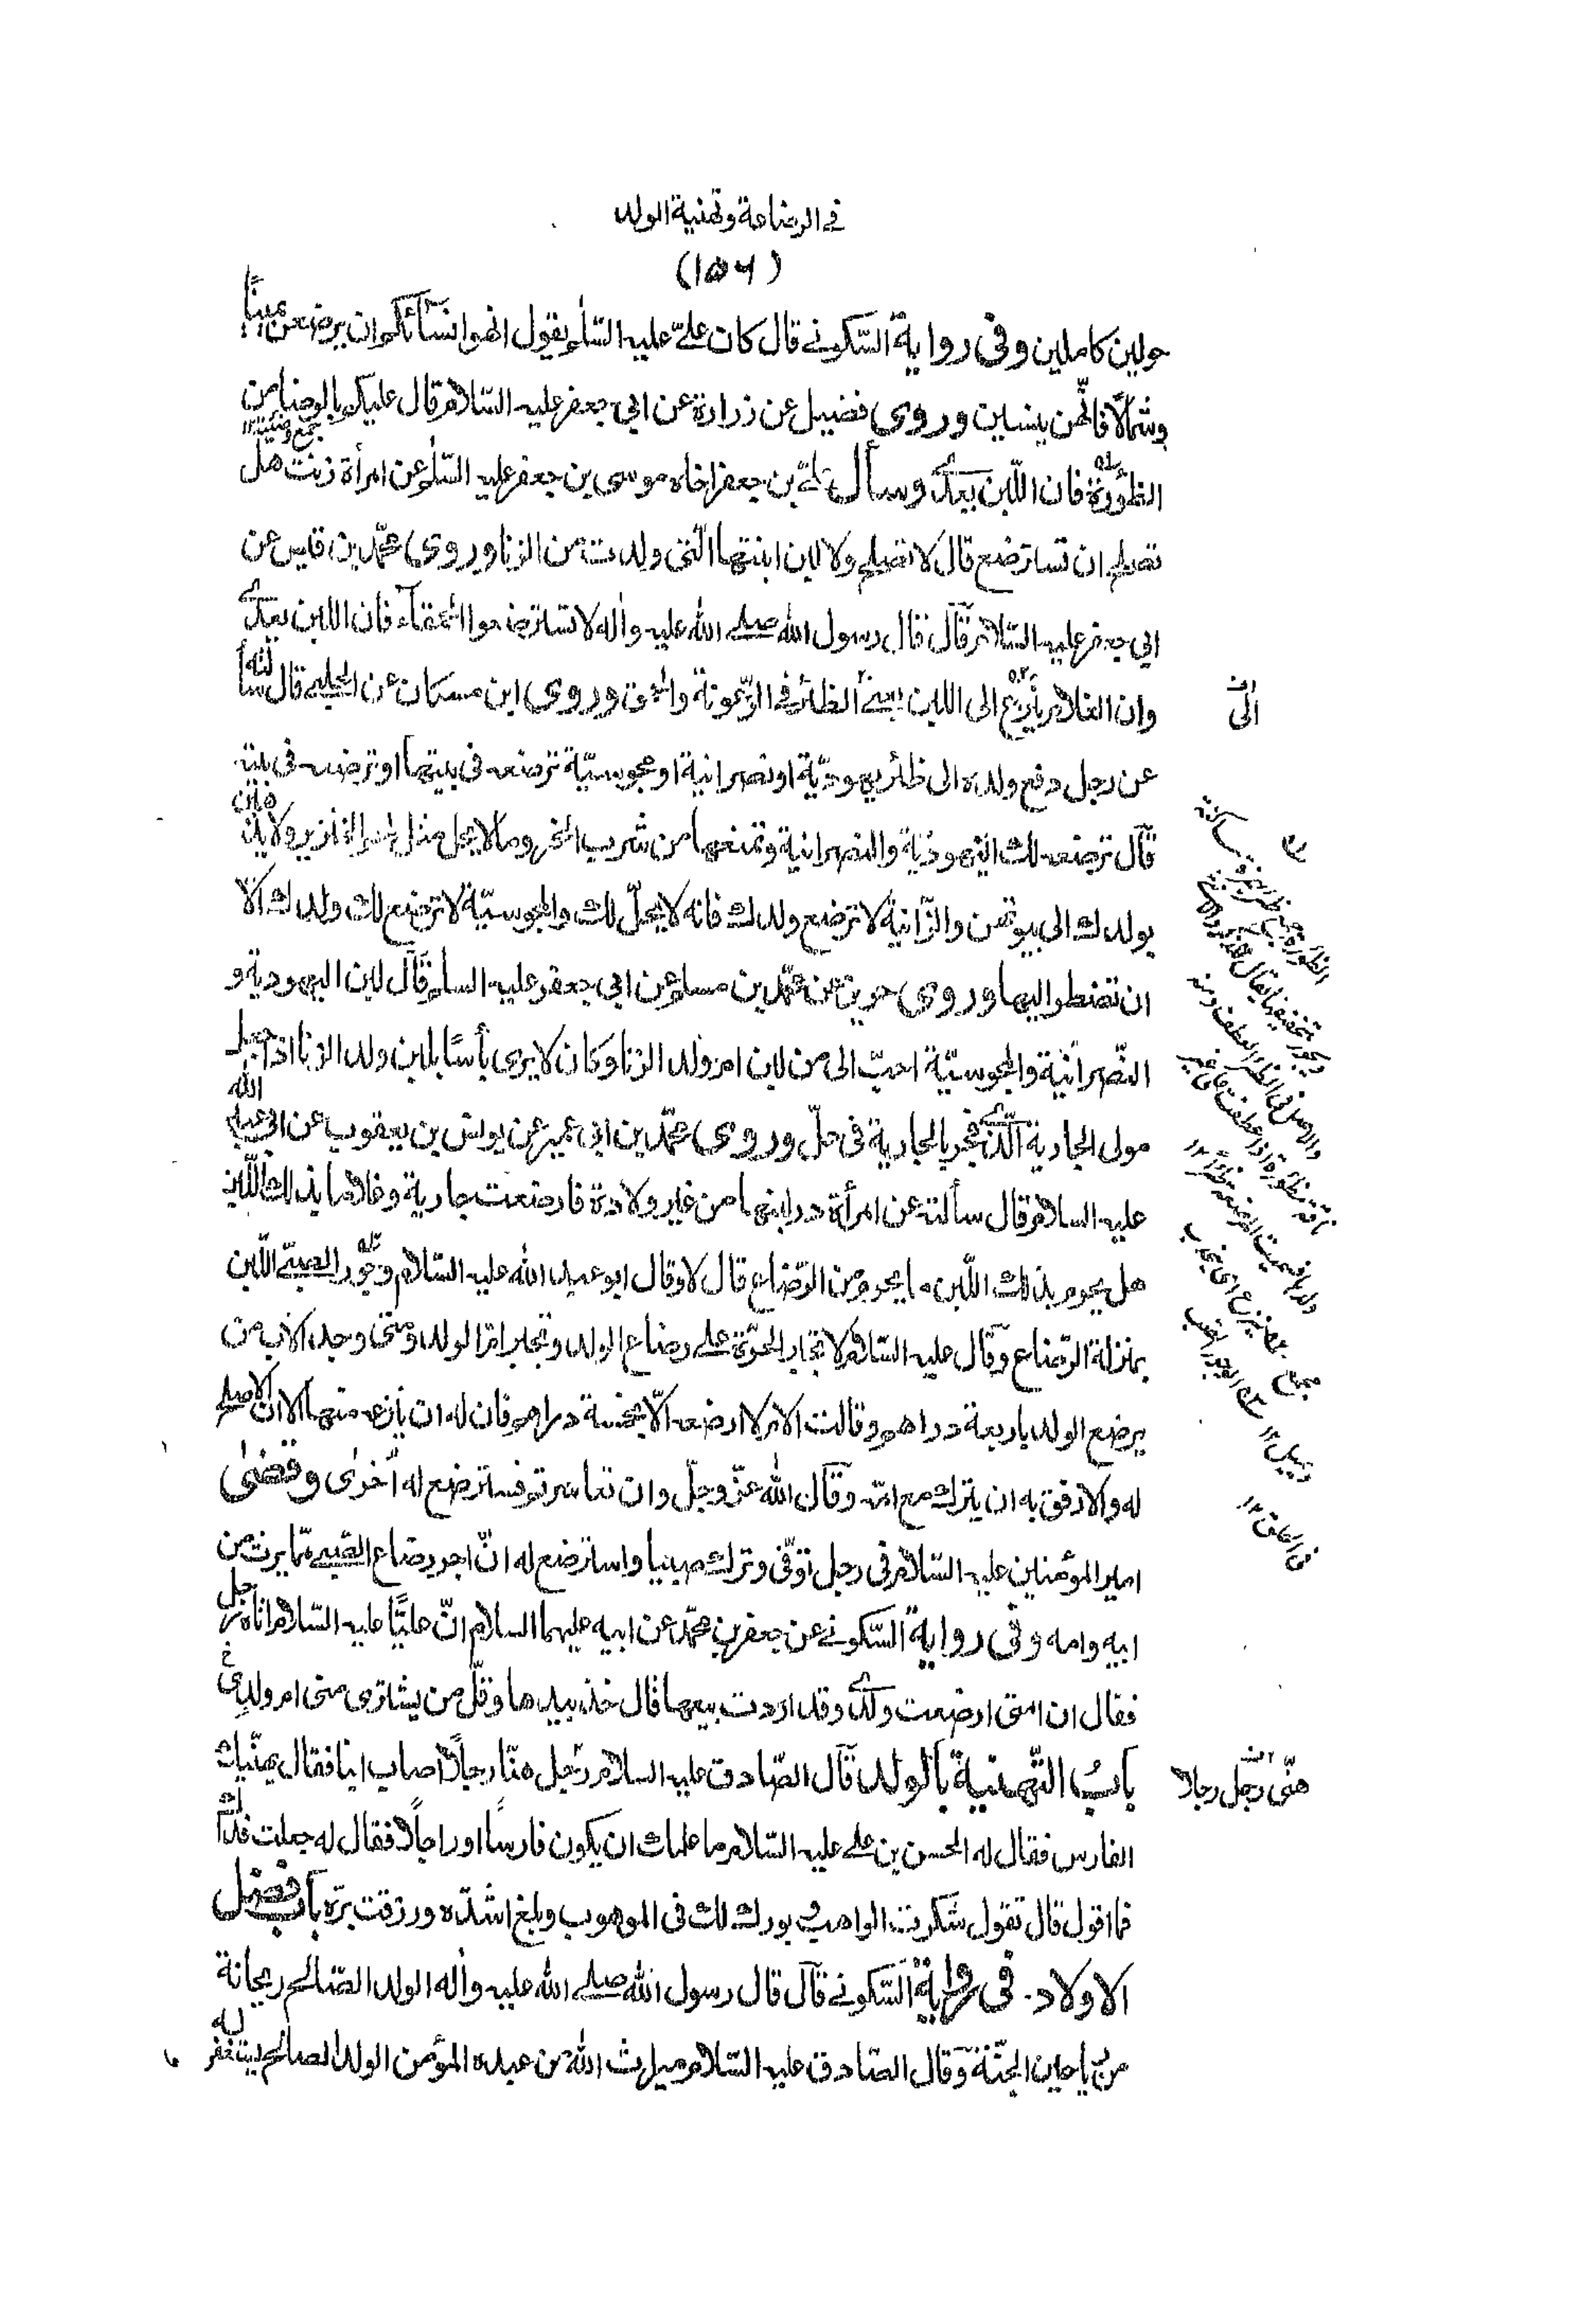 في الرضاعة وتهنية الولد
(١٥٦)
حولين كاملين وفى رواية السّكوني قال كان علىّ عليه السّلم يقول انهوا نسآئكم ان يرضعن يمينًا
وشمالًا فانّهن ينسين وروى فضيل عن زرارة عن ابي جعفر عليه السّلام قال عليكم بالوضا من
الظؤرة فان اللّبن يعدي وسأل علىّ بن جعفر اخاه موسى بن جعفر عليه السّلم عن امرأة زنت هل
تصلح ان تسترضع قال لا تصلح ولا لبن ابنتها الّتى ولدت من الزنا وروى محمّد بن قيس عن
ابي جعفر عليه السّلام قال قال رسول الله صلى الله عليه وأله لا تسترضعوا الحمقآء فان اللبن يعدي
وان الغلام ينزع الى اللبن يعني الى الظئر في الرّعونة والحمق وروى ابن مسكان عن الحلبي قال سألته
عن رجل دفع ولده الى ظئر يهوديّة او نصرانية او مجوسيّة ترضعه فى بيتها او ترضعه فى بيته
قال ترضعه لك اليهوديّة والنصرانية وتمنعها من شرب الخمر وما لا يحل مثل لحم الخنزير ولا يذهبن
بولدك الى بيوتهن والزّانية لا ترضع ولدك فانه لا يحلّ لك والمجوسيّة لا ترضع لك ولدك الّا
ان تضطر اليها وروى حريز عن محمّد بن مسلم عن ابي جعفر عليه السلم قال لبن اليهودية و
النّصرانيّة والمجوسيّة احبّ الى من لبن ام ولد الزنا وكان لا يرى بأسًا بلبن ولد الزنا اذا جعل
مولى الجارية الّذي فجر بالجارية فى حلّ وروى محمّد بن ابي عمير عن يونس بن يعقوب عن ابي عبد الله
عليه السلام قال سألته عن امرأة در لبنها من غير ولادة فارضعت جارية وغلاما بذلك اللّبن
هل يحرم بذلك اللّبن ما يحرم من الرّضاع قال لا وقال ابو عبد الله عليه السّلام وجور الصبيّ اللّبن
بمنزلة الرّضاع وقال عليه السّلام لا تجبر الحرّة على رضاع الولد وتجبر امّ الولد ومتى وجد الاب من
يرضع الولد باربعة دراهم وقالت الام لا ارضعه الّا بخمسة دراهم فان له ان ينزعه منها الا ان الاصلح
له والارفق به ان يتركه مع امّه وقال الله عزّ وجلّ وان تعاسرتم فسترضع له أخرى وقضىٰ
امير المؤمنين عليه السّلام فى رجل توفّى وترك صبيا واسترضع له انّ اجر رضاع الصّبي ممّا يرث من
ابيه وامه وفى رواية السّكوني عن جعفر بن محمّد عن ابيه عليهما السلام انّ عليًّا عليه السّلام اتاه رجل
فقال ان امتى ارضعت ولدي وقد اردت بيعها قال خذ بيدها وقل من يشترى منى ام ولدى
بابُ التّهنية بالولد قال الصّادق عليه السلام رجل هنّأ رجلًا اصاب ابنا فقال يهنّيك
الفارس فقال له الحسن بن على عليه السّلام ما علمك ان يكون فارسًا او راجلًا فقال له جعلت فداك
فما اقول قال تقول شكرت الواهب وبورك لك فى الموهوب وبلغ اشدّه ورزقت برّه باب فضل
الاولاد. فى رواية السّكوني قال قال رسول الله صلى الله عليه وأله الولد الصّالح ريحانة
من رياحين الجنّة وقال الصّادق عليه السّلام ميراث الله من عبده المؤمن الولد الصالح يستغفر له
الى
هنّى رجل رجلا